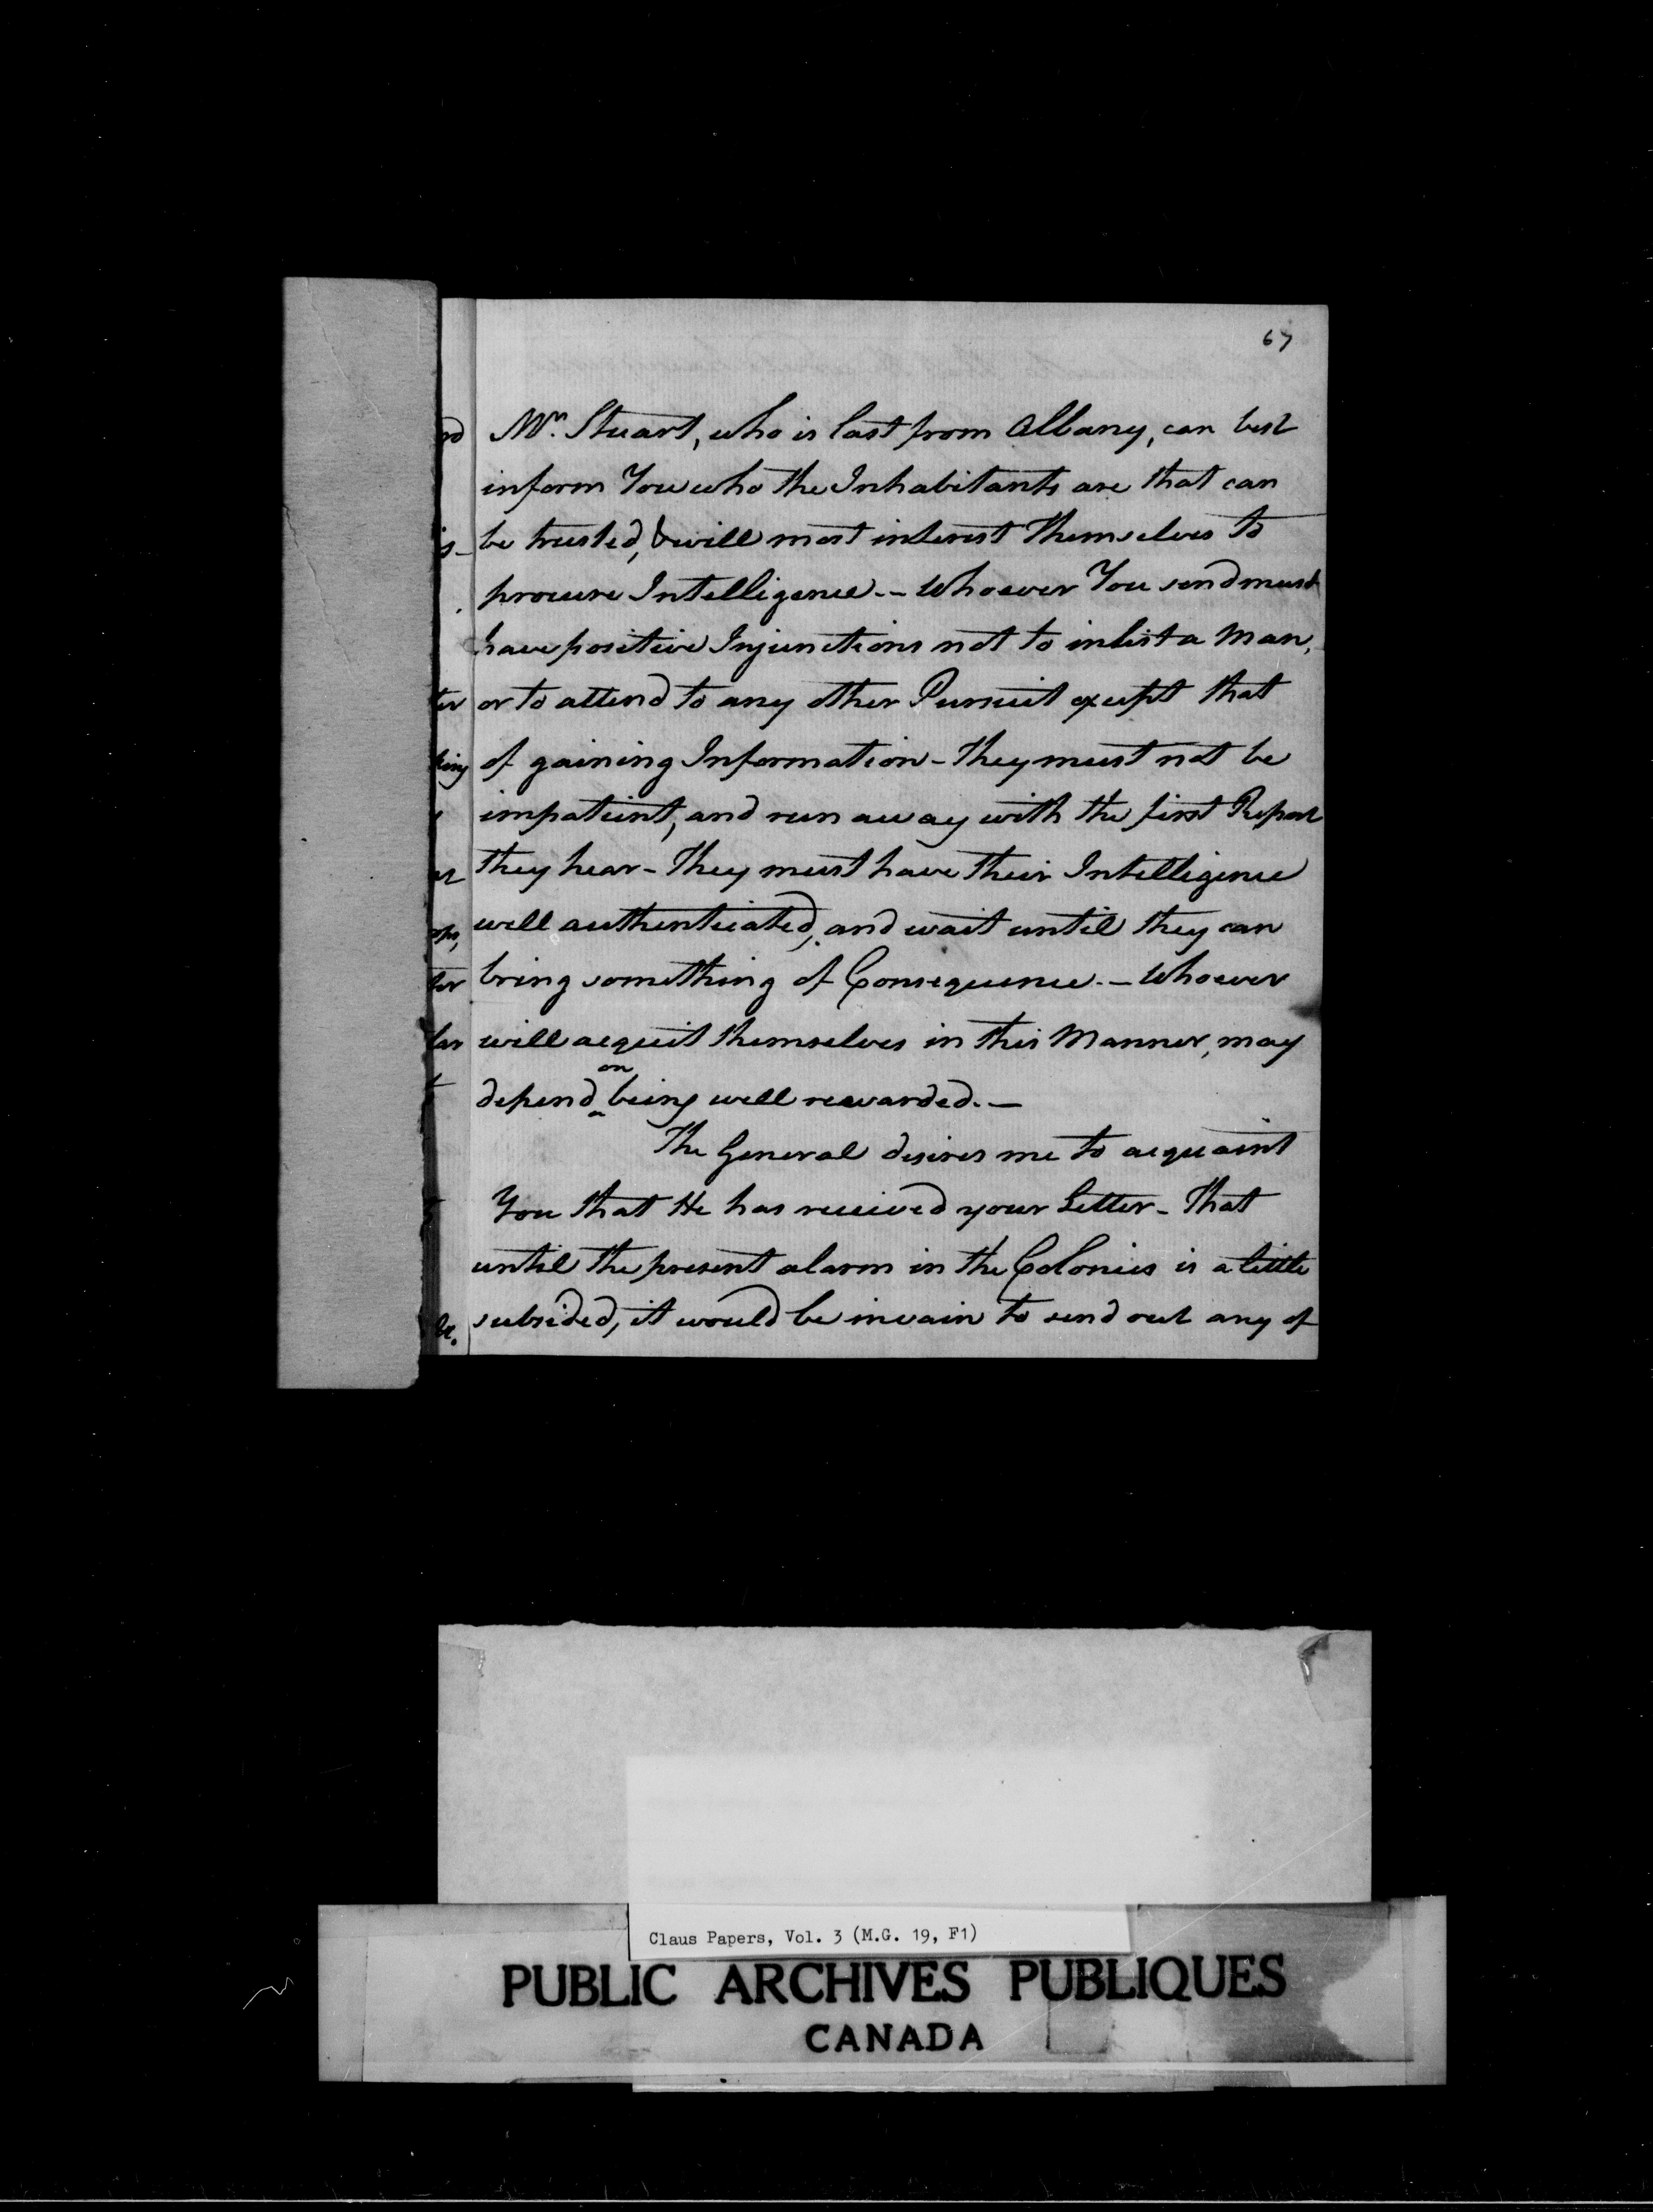 67
Mr. Stuart, who is last from Albany, can best
inform You who the Inhabitants are that can
be trusted, & will most interest Themselves to
procure Intelligence. -- Whoever You send must
have positive Injunctions not to inlist a Man,
or to attend to any other Pursuit except that
of gaining Information - They must not be
impatient, and run away with the first Report
they hear - They must have their Intelligence
well authenticated, and wait until they can
bring something of Consequence. - Whoever
will acquit themselves in this Manner, may
on
depend being well rewarded. -
The General desires me to acquaint
You that He has received your Letter - That
until the present alarm in the Colonies is a little
subsided, it would be in vain to send out any of
Claus Papers, Vol. 3 (M.G. 19, F1)
PUBLIC ARCHIVES PUBLIQUES
CANADA